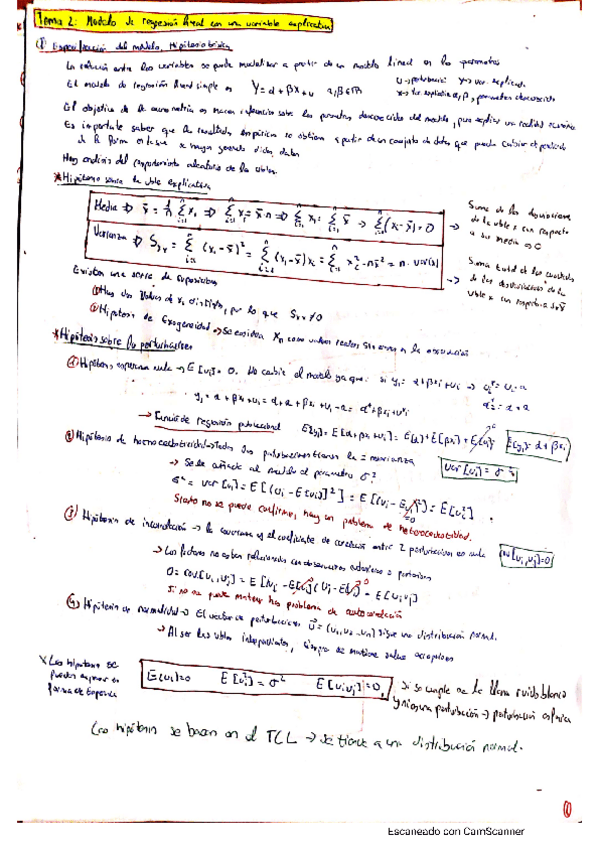 Tema 2: Modelo de regresión lineal con una variable explicativa
① Especificación del modelo. Hipótesis básicas
La relación entre las variables se puede modelizar a partir de un modelo lineal en los parámetros
El modelo de regresión lineal simple es Y = α + βx + u α, β ∈ ℝ
u → perturbación Y → var. explicada
x → var. explicativa α, β, parámetros desconocidos
El objetivo de la econometría es hacer inferencia sobre los parámetros desconocidos del modelo, para explicar una realidad económica
Es importante saber que los resultados empíricos se obtienen a partir de un conjunto de datos que puede cambiar
de la forma en la que se hayan generado dichos datos
Hay análisis del comportamiento aleatorio de las vbles.
* Hipótesis sobre la vble explicativa
Media ⇒ x̄ = 1/n Σ xi ⇒ Σ xi = x̄·n ⇒ Σ xi = Σ x̄ ⇒ Σ(xi - x̄) = 0
→ Suma de las desviaciones
de la vble x con respecto
a su media es 0
Varianza ⇒ Sxx = Σ (xi - x̄)² = Σ (xi - x̄)xi = Σ xi² - nx̄² = n · var(x)
→ Suma total de los cuadrados
de las desviaciones de la
vble x con respecto a su x̄
Existen una serie de supuestos
① Hay dos valores de xi distintos, por lo que Sxx ≠ 0
② Hipótesis de Exogeneidad → Se considera xn como valores reales sin error en la
* Hipótesis sobre la perturbación
① Hipótesis esperanza nula → E[ui] = 0. No cambie el modelo ya que: si yi = α + βxi + ui → ui* = ui - a
α* = α + a
yi = α + βxi + ui = α + a + βxi + ui - a = α* + βxi + ui*
→ Función de regresión poblacional E[yi] = E[α + βxi + ui] = E[α] + E[βxi] + E[ui] 0
E[yi] = α + βxi
② Hipótesis de homocedasticidad → Todas las perturbaciones tienen la = varianza
var[ui] = σ²
→ Se le añade al modelo el parámetro σ²
σ² = var[ui] = E[(ui - E[ui])²] = E[(ui - E[ui])²] = E[ui²]
=0
Si esto no se puede confirmar, hay un problema de heterocedasticidad.
③ Hipótesis de incorrelación → la covarianza y el coeficiente de correlación entre 2 perturbaciones es nula
cov[ui, uj] = 0
→ Los factores no están relacionados con observaciones anteriores o posteriores
0 = cov[ui, uj] = E[(ui - E[ui])(uj - E[uj])] = E[ui uj]
Si no se puede mantener hay problema de autocorrelación
④ Hipótesis de normalidad → El vector de perturbaciones u = (u1, u2, ..un) sigue una distribución normal.
→ Al ser las vbles independientes, siempre se mantiene
* Las hipótesis se
pueden expresar en
forma de Esperanza
E(ui)=0 E[ui²] = σ² E[ui uj] = 0
Si se cumple se le llama ruido blanco
y ninguna perturbación → perturbación esférica
Las hipótesis se basan en el TCL → se tiende a una distribución normal.
①
Escaneado con CamScanner